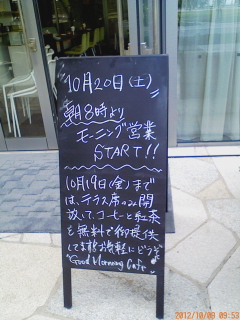 10月20日(土)
朝8時より
モーニング営業
START!!
10月19日(金)まで
は、テラス席のみ開
放して、コーヒーと紅茶
を無料で御提供
してます。お気軽にどうぞ
Good Morning Cafe
2012/10/09 09:53